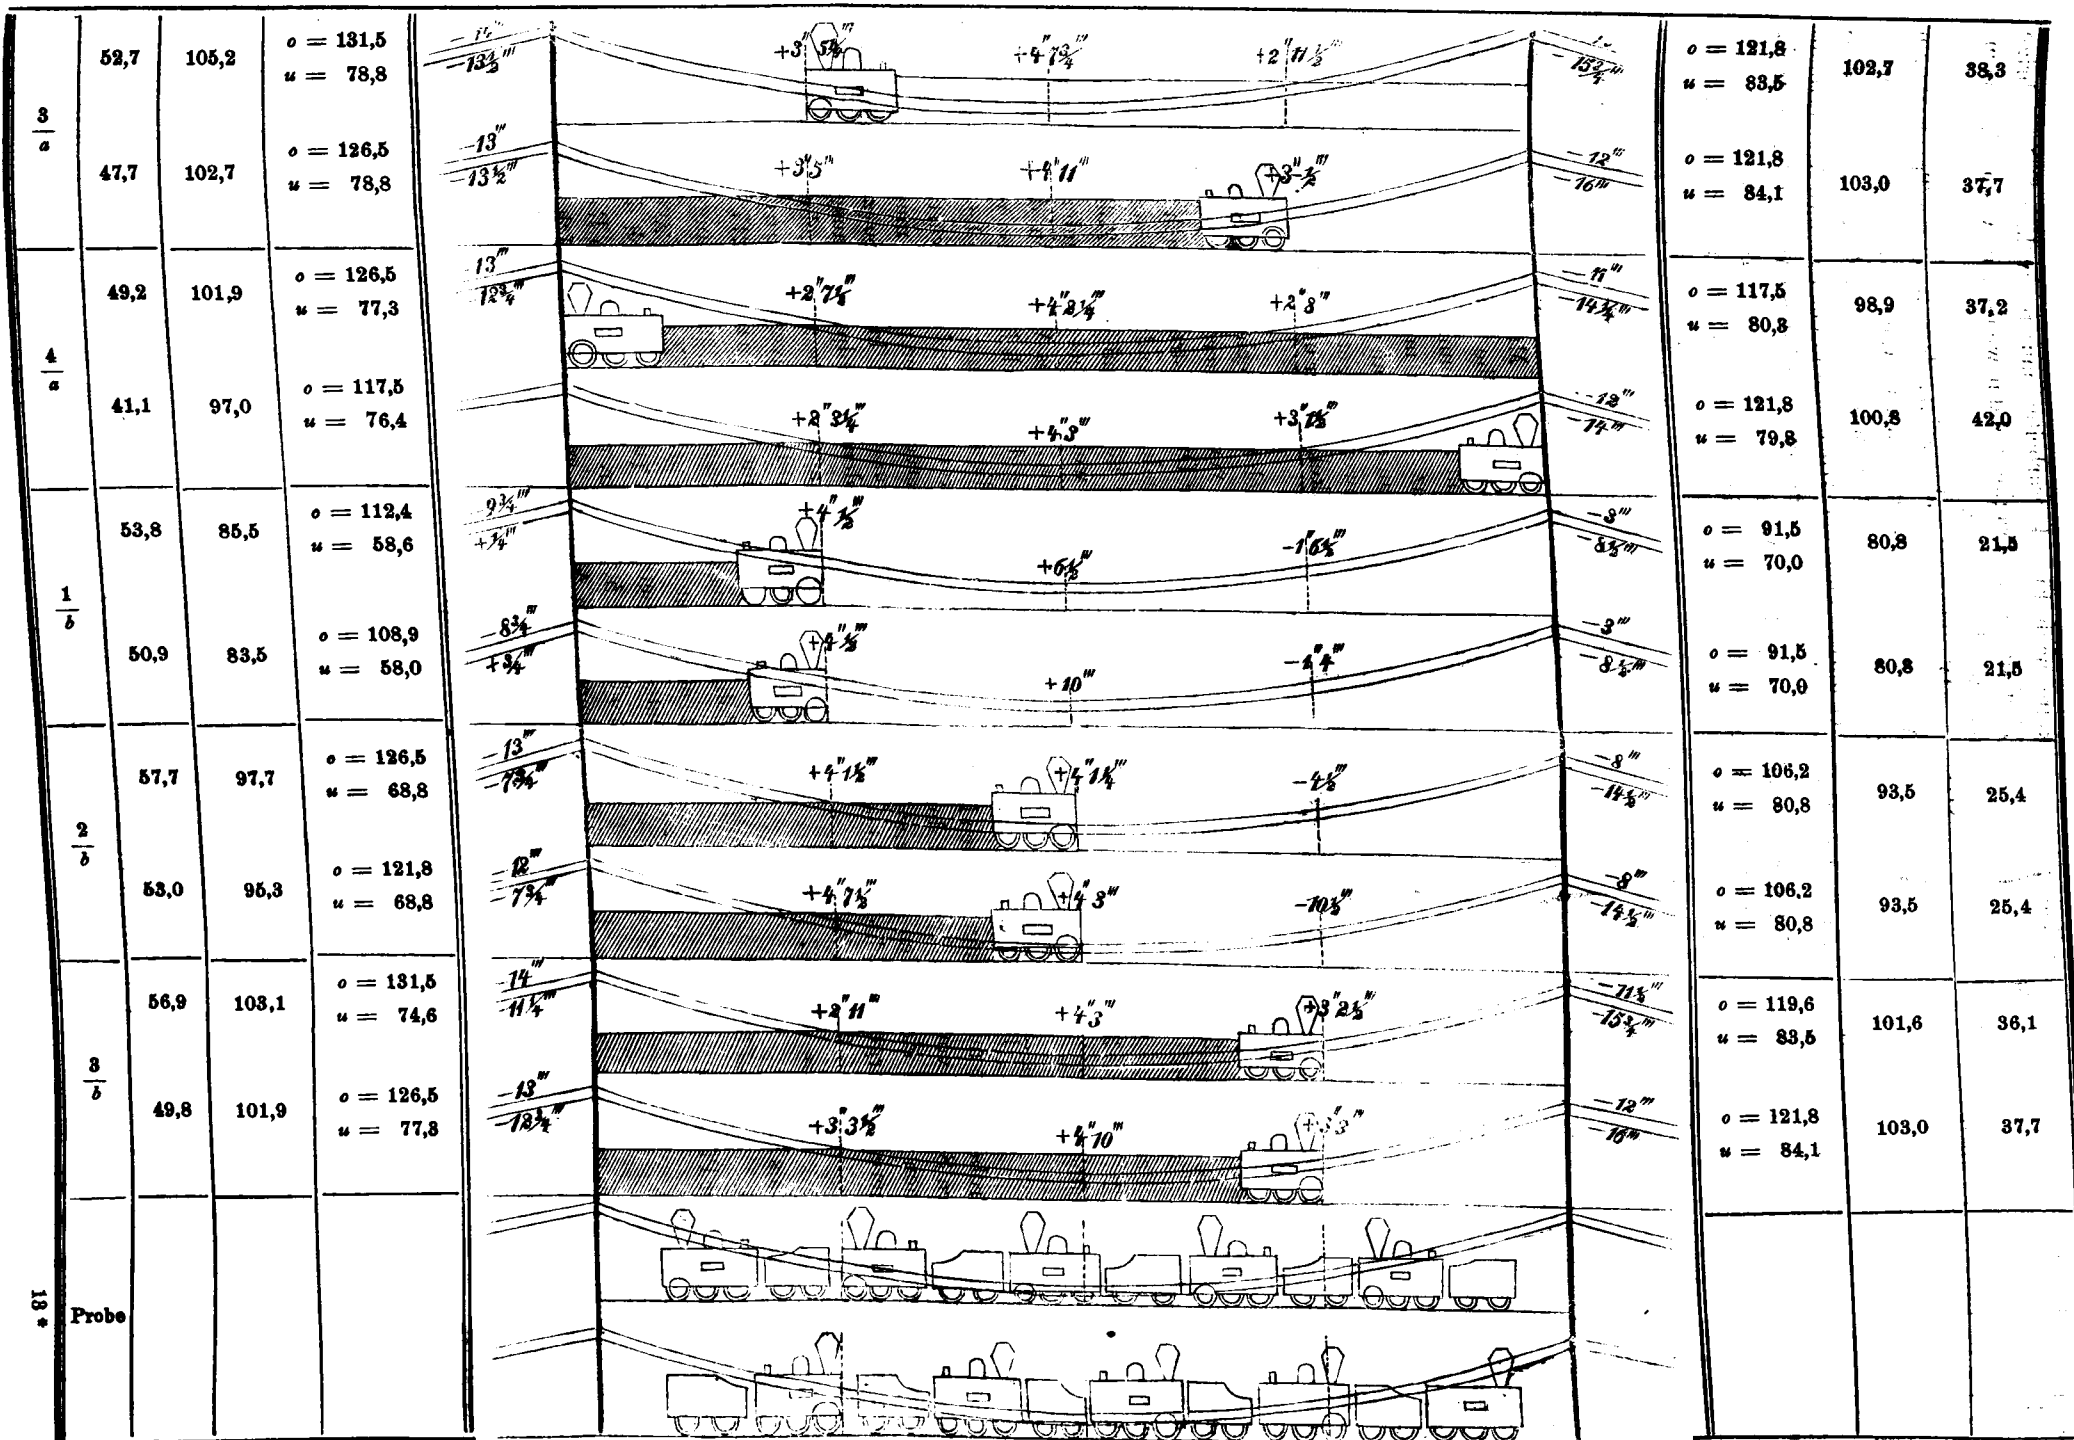 3/a
52,7 105,2 o = 131,5
u = 78,8
-13½'''
+3'' +4''7¾''' +2''11½'''
-15¾'''
o = 121,8 102,7 38,3
u = 83,5
47,7 102,7 o = 126,5
u = 78,8
-13'''
-13½'''
+3''5''' +4''11''' +3''-½'''
-12'''
-16'''
o = 121,8 103,0 37,7
u = 84,1
4/a
49,2 101,9 o = 126,5
u = 77,3
13'''
12¾'''
+4''2¼''' +2''8'''
-11'''
-14¼'''
o = 117,5 98,9 37,2
u = 80,3
41,1 97,0 o = 117,5
u = 76,4
+2''3¼''' +4''3''' +3''1½'''
-12'''
-14'''
o = 121,8 100,8 42,0
u = 79,8
1/b
53,8 85,5 o = 112,4
u = 58,6
9¾'''
+¼'''
+4''½''' +6½''' -1''6½'''
-3'''
-8½'''
o = 91,5 80,8 21,5
u = 70,0
50,9 83,5 o = 108,9
u = 58,0
-8¾'''
+¾'''
+4''½''' +10''' -1''4'''
-3'''
-8½'''
o = 91,5 80,8 21,5
u = 70,0
2/b
57,7 97,7 o = 126,5
u = 68,8
-13'''
-7¾'''
+4''1½''' +4''1¼''' -4½'''
-8'''
-14½'''
o = 106,2 93,5 25,4
u = 80,8
53,0 95,3 o = 121,8
u = 68,8
-12'''
-7¾'''
+4''7½''' +4''3''' -10½'''
-8'''
-14½'''
o = 106,2 93,5 25,4
u = 80,8
3/b
56,9 103,1 o = 131,5
u = 74,6
-14'''
-11¼'''
+2''11''' +4''3''' +3''2½'''
-11½'''
-15¾'''
o = 119,6 101,6 36,1
u = 83,5
49,8 101,9 o = 126,5
u = 77,3
-13'''
-12¾'''
+3''3½''' +4''10''' +3''3'''
-12'''
-16'''
o = 121,8 103,0 37,7
u = 84,1
Probe
18 *